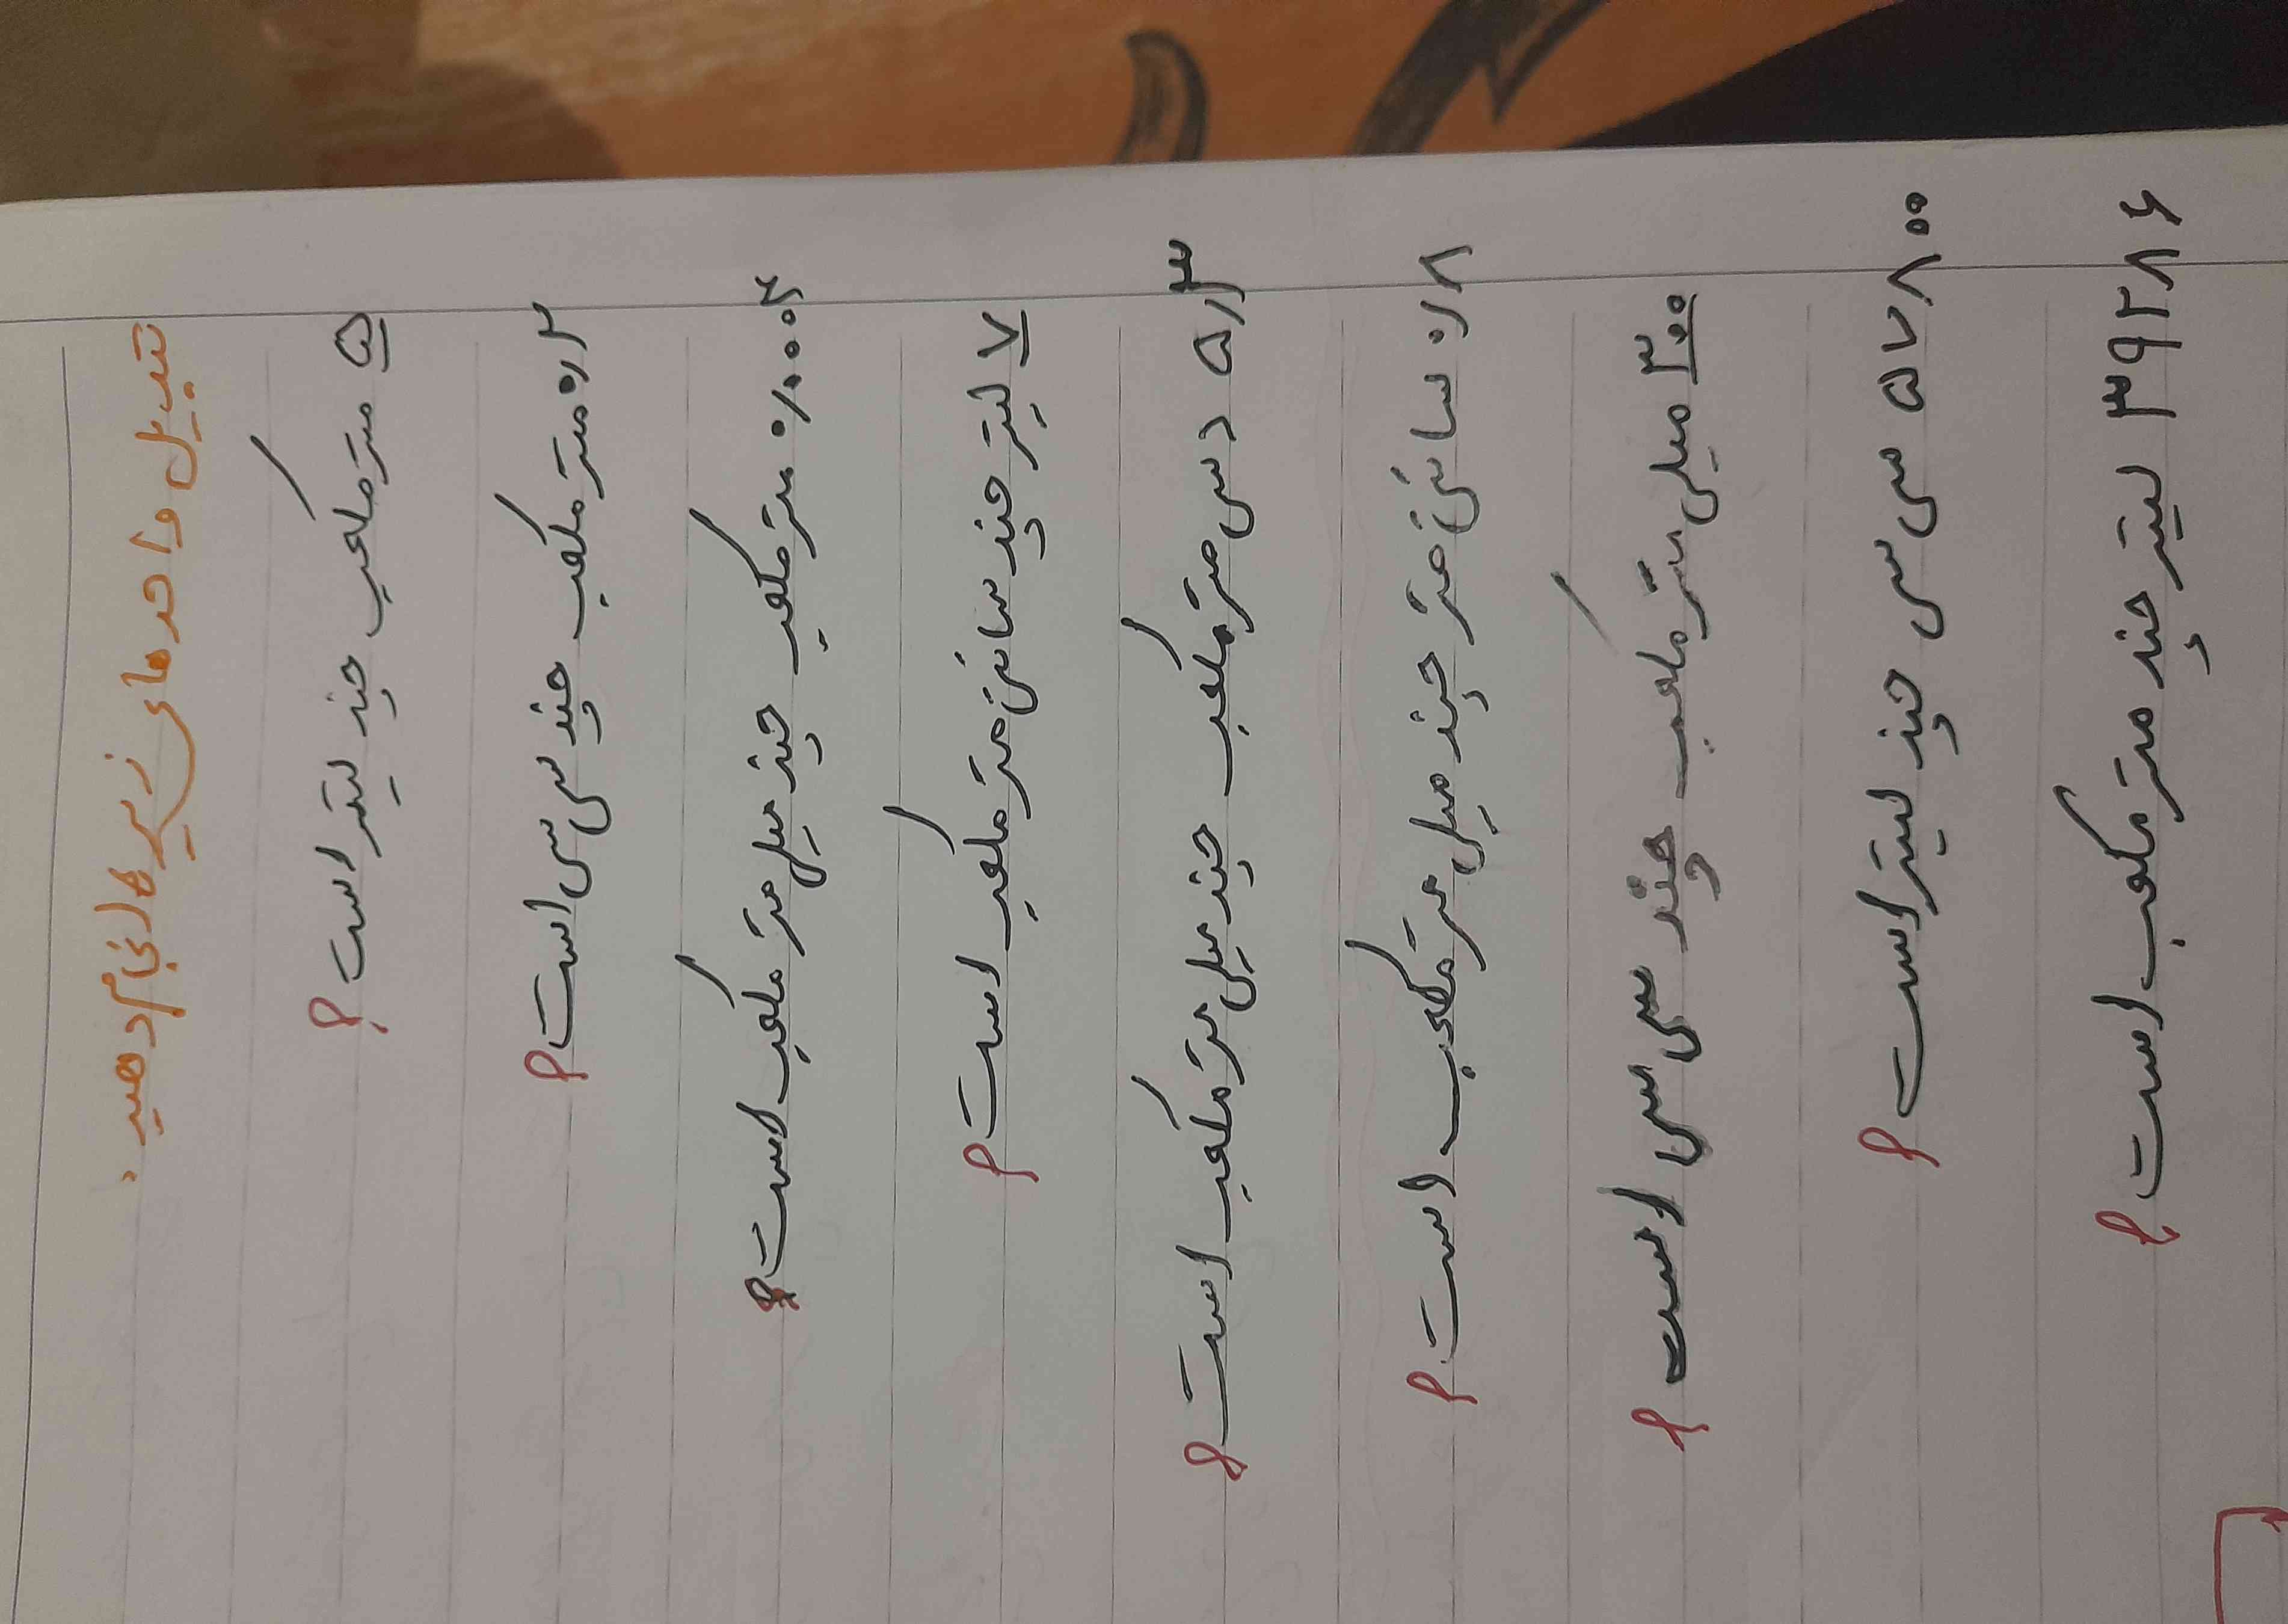 تبدیل واحدهای زیر را انجام دهید.
۵ مترمکعب چند لیتر است؟
۰/۲ مترمکعب چند سی سی است؟
۰/۰۰۰۴ مترمکعب چند میلی متر مکعب است؟
۷ لیتر چند سانتی متر مکعب است؟
۵/۳ دسی متر مکعب چند میلی متر مکعب است؟
۰/۸ سانتی متر چند میلی متر مکعب است؟
۳۰۰ میلی متر مکعب چند سی سی است؟
۵۷۸۰۰ سی سی چند لیتر است؟
۳۹۲۸۶ لیتر چند متر مکعب است؟